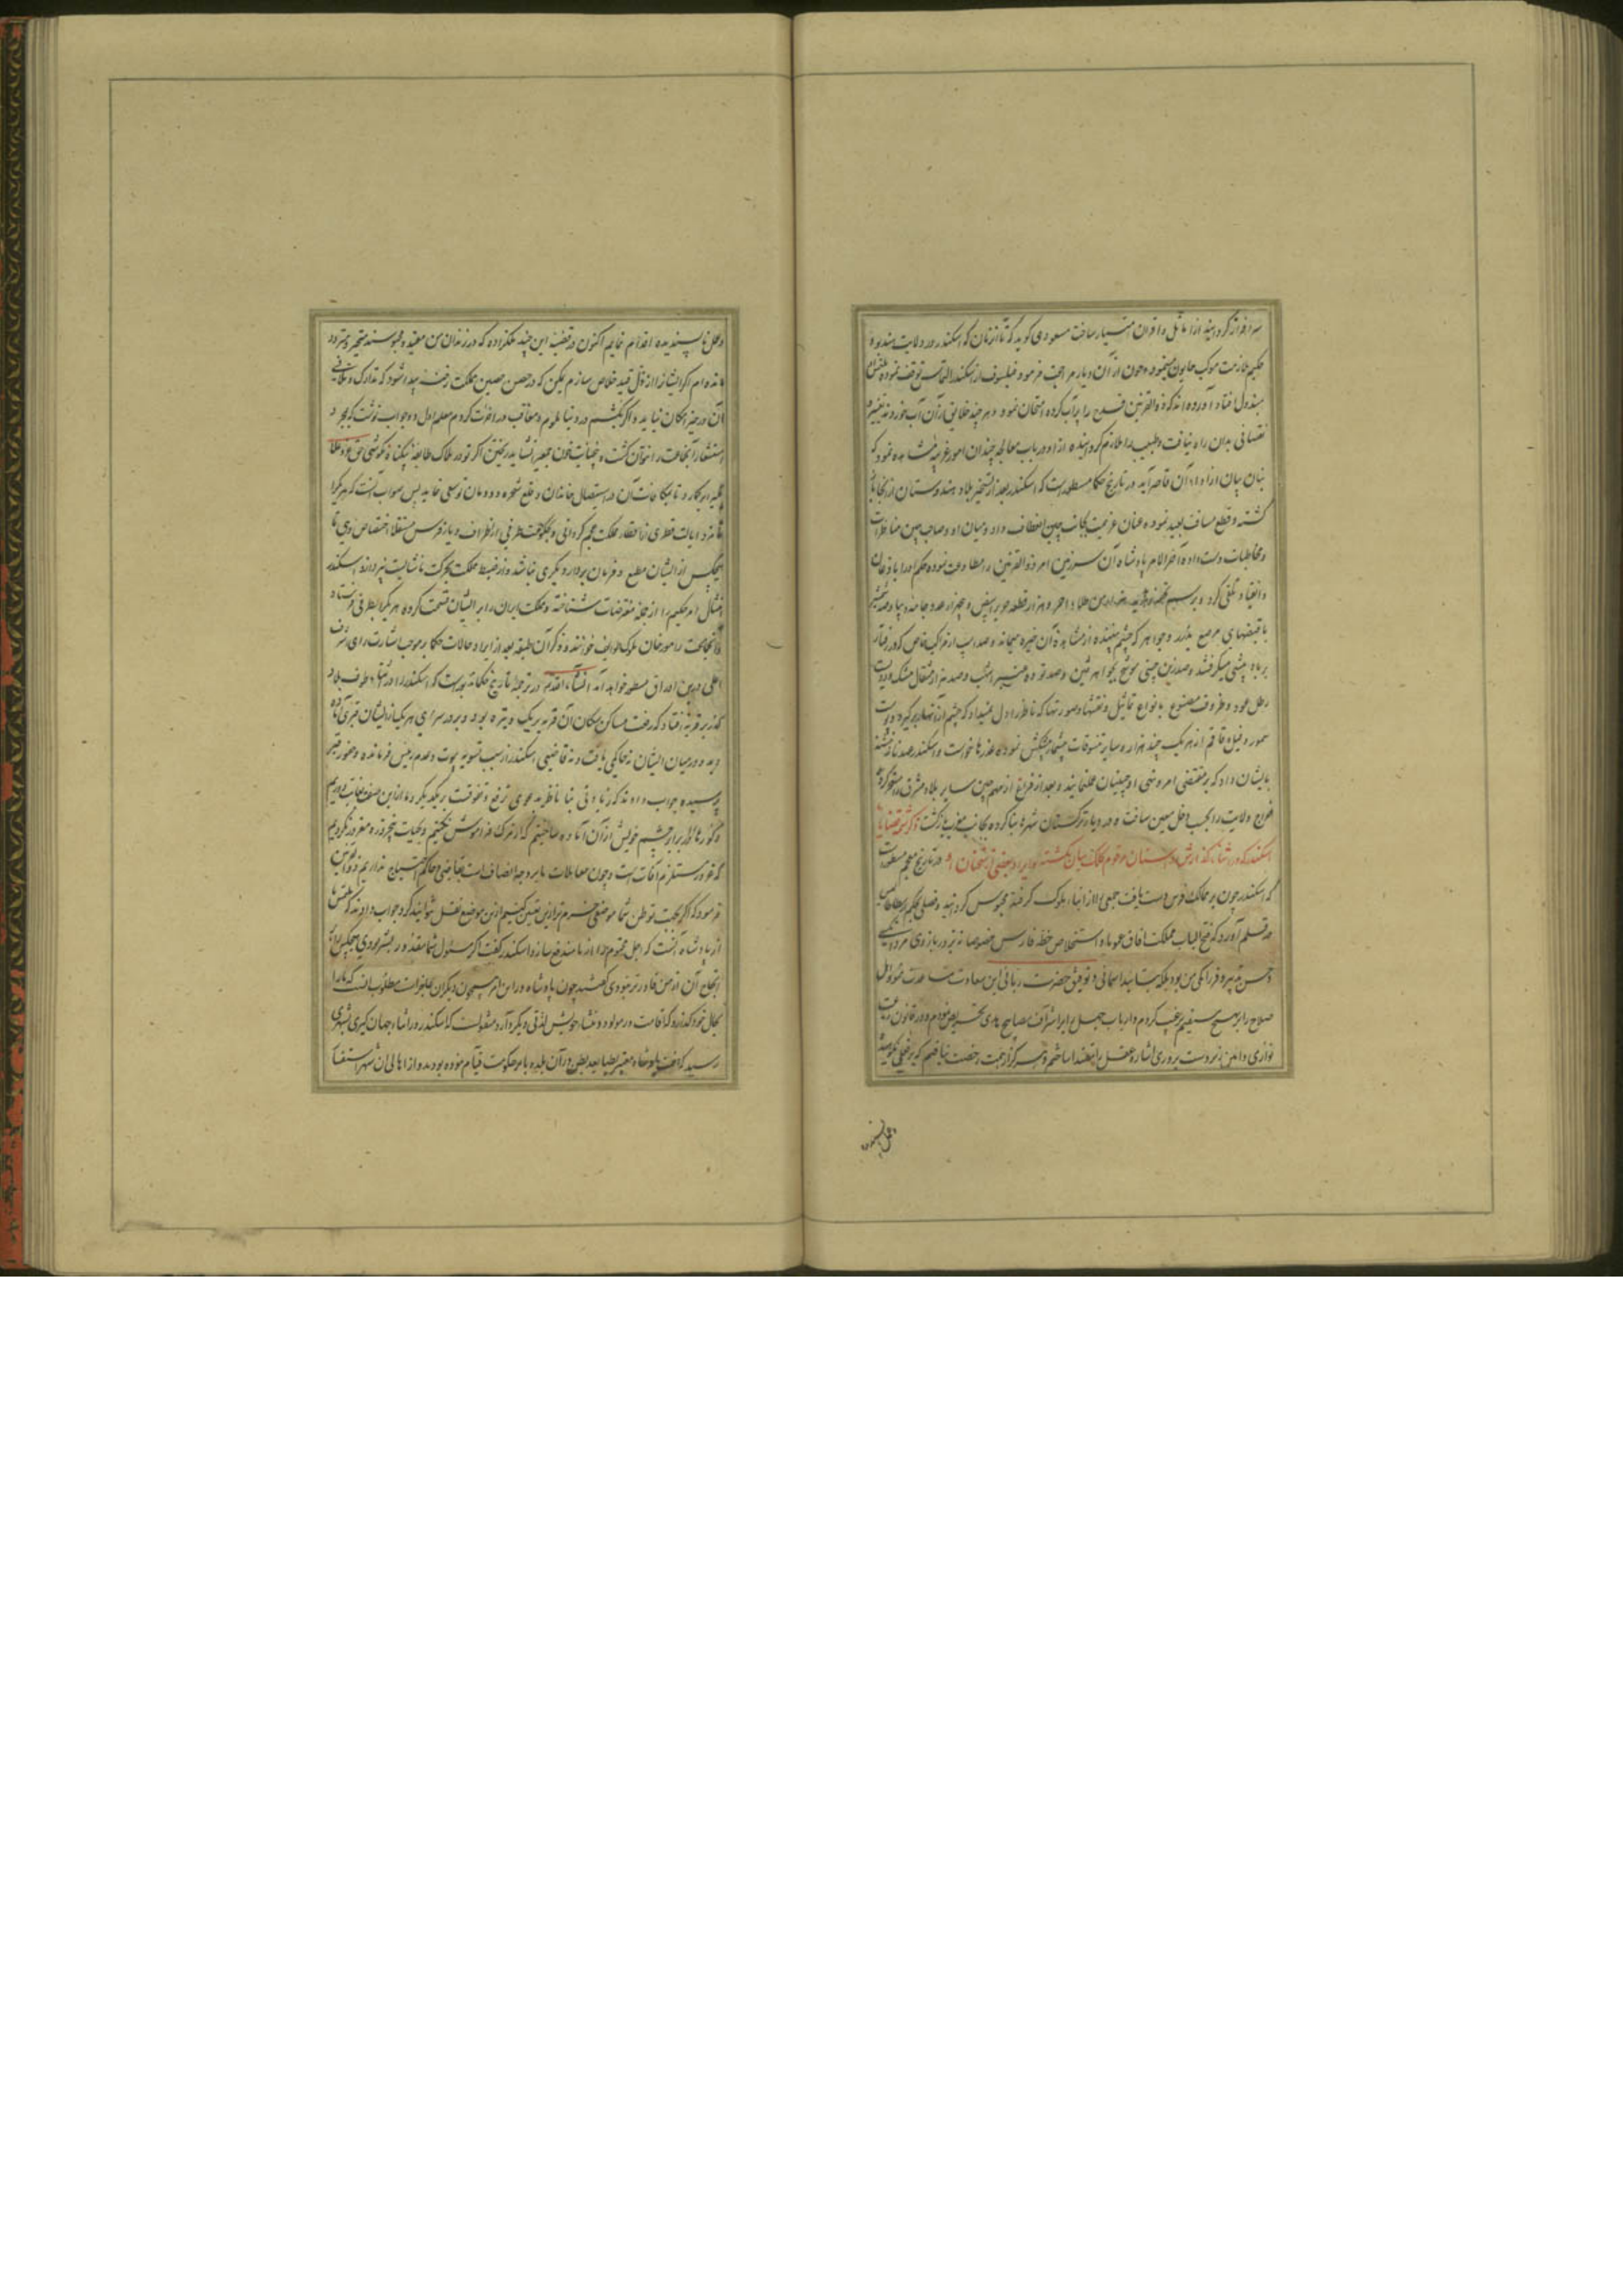 سرافراز گردانید از اماثل و اقران ممتاز ساخت مسعودی گوید که تا آن زمان که اسکندر در ولایت هند بود
حکیم ملازمت موکب همایون مینمود و چون از آن دیار مراجعت فرمود فیلسوف از اسکندر التماس توقف نموده
مبذول افتاد آورده اند که ذوالقرنین قدح را پر آب کرده امتحان نمود و هر چند خلایق از آن آب خوردند
نقصانی بدان راه نیافت و طبیب را ملازم گردانیده از او در باب معالجه چندان امور غریبه مشاهده نمود که
بنان بیان از اداء آن قاصر آید در تاریخ حکما مسطور است که اسکندر بعد از تسخیر بلاد هندوستان از آنجا
گشته و قطع مسافت بعید نموده عنان عزیمت بجانب چین انعطاف داد و میان او و صاحب چین مناظرات
و مخاطبات دست داده آخر الامر پادشاه آن سرزمین امر ذوالقرنین را مطاوعت نموده حکم او را باذعان
و انقیاد تلقی کرد و برسم من طلاء احمر و هزار قطعه حریر ابیض و پنجهزار عدد جامه دیبا و صد شمشیر
با قبضهای مرصع بدرر و جواهر که چشم بیننده از مشاهده آن خیره میماند و صد اسب از مراکب خاص که در رفتار
بر باد پیشی میگرفتند و صد زین چینی موشح بجواهر ثمین و صد توده عنبر اشهب و صد هزار مثقال مشک و دویست
رطل عود و ظروف مصنوع بانواع تماثیل و نقشها و صورتها که ناظر را دل نمیداد که چشم از آنها برگیرد و پوست
سمور و فیله قاقم از هر یک چند هزار و سایر تنسوقات پیشمار پیشکش نموده عذرها خواست و اسکندر
بایشان داد که بر مقتضی امر و نهی او چینیان عمل نمایند و بعد از فراغ از مهم چین سایر بلاد مشرق را مسخر کرده
خراج ولایت را بجب دخل معین ساخت و در دیار ترکستان شهرها بنا کرده بجانب مغرب بازگشت ذکر شمه قضایای
اسکندر که در شاء گذارش داستان مرقوم کلک بیان نگشته و ایراد بعضی از سخنان او در تاریخ معجم مسطور است
که اسکندر چون بر ممالک فرس دست یافت جمعی را از ابناء ملوک گرفته محبوس گردانید و فصلی بحکیم ارسطاطالیس
در قلم آورد که فتح الباب مملکت آفاق عموما و استخلاص خطه فارس خصوصا نه بزور بازوی مردانگی
و حسن تدبیر و فرزانگی من بود بلکه بتایید آسمانی و توفیق حضرت ربانی این سعادت مساعدت نمود اول
صلاح را بر مستقیم ترغیب کردم و ارباب جهل را برا شراف مصابیح هدی تحریض نمودم و در قانون رعیت
نوازی و دامن زبردست پروری اشاره عقل را مقتدا ساختم و هرگز از همت رخصت نیافتم که بر فعلی نکوهیده
و عمل ناپسندیده
و عمل ناپسندیده اقدام نمایم اکنون در قضیه این چند ملکزاده که در زندان من مقید و محبوسند متحیر و متردد
مانده ام اگر ایشانرا از ذل قید خلاص سازم یمکن که در حصن حصین مملکت رخنه پیدا شود که تدارک و تلافی
آن در حیز امکان نیاید و اگر بکشم در دنیا ملوم و معاقب در آخرت گردم معلم اول در جواب نوشت که بمجرد
استشعار آنجماعت را نتوان کشت و خون جمعی نشاید ریختن اگر تو در هلاک طایفه بیگناه کوشی
برگمارد تا بمکافات آن در استیصال خاندان و قلع شجره دودمان تو سعی نماید پس صواب آنست که هر یک را
نامزد ایالت قطری از اقطار مملکت عجم گردانی و بحکومت طرفی از اطراف دیار فرس مستقلا اختصاص دهی تا
هیچکس از ایشان مطیع و فرمان بردار دیگری نباشد و از ضبط مملکت بحرکت ناشایست نپردازد اسکندر
امتثال امر حکیم را از جمله مفترضات شناخته و مملکت ایران را بر ایشان قسمت کرده هر یک را بطرفی فرستاد
و آنجماعت را مورخان ملوک طوایف خوانند و ذکر آن طبقه بعد از ایراد حالات حکما بر موجب اشارت رای اشرف
اعلی درین اوراق مسطور خواهد آمد انشاء الله تعالی در ترجمه تاریخ حکما مذکور است که اسکندر را در اثناء طوف بلاد
گذر بر قریه افتاد که رفعت مساکن سکان آن قریه بر یک وتیره بود و بر در سرای هر یک از ایشان قبری آماده
دید و در میان ایشان نه حاکمی یافت و نه قاضیی اسکندر از سبب تسویه بیوت و عدم رئیس فرمانده و حفر قبر
پرسید جواب دادند که زیادتی بنا ناظر بدعوی ترفع و تفوقست بر یکدیگر و ما از این صفت بغایت دوریم
و گورها را در برابر چشم خویش از آن آماده ساختیم که از مرگ فراموش نکنیم و بحیات پنجروزه مغرور نگردیم
که غرور مستلزم آفات است و چون معاملات ما بر وجه انصاف است بقاضی و حاکم احتیاج نداریم ذوالقرنین
فرمود که اگر بجهت توطن شما موضعی خرم تر ازین تعیین کنیم ازین موضع نقل توانید کرد جواب دادند که ملتمس ما
از پادشاه آنست که اجل محتوم را از ما مندفع سازد اسکندر گفت اگر مسئول شما مقدور بشر بودی هیچکس برای
انجاح آن از من قادرتر نبودی گفتند چون پادشاه در این امر همچون دیگران عاجز است مطلوب آنست که ما را
بحال خود گذارد که اقامت در مولد و منشاء خویش لذتی دیگر دارد منقولست که اسکندر در اثناء جهان گیری بشهری
رسید که هفت پادشاه معتبر بعضا بعد بعض در آن بلده بامر حکومت قیام نموده بودند و از اهالی آن شهر استفسار